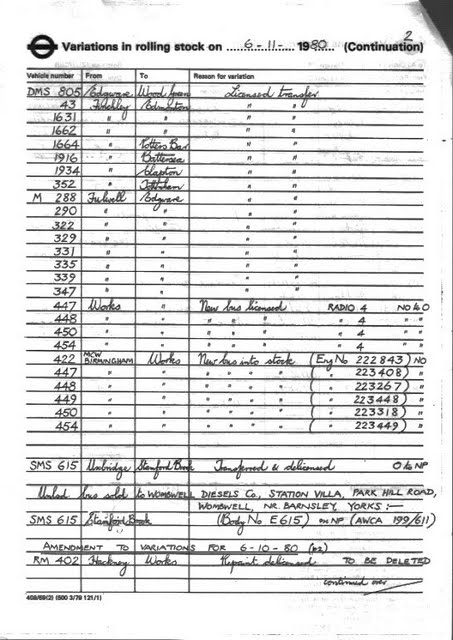 2
Variations in rolling stock on 6-11- 1980 (Continuation)
Vehicle number From To Reason for variation
DMS 805 Edgware Wood Green Licensed transfer
43 Finchley Edmonton " "
1631 " " " "
1662 " " " "
1664 " Potters Bar " "
1916 " Battersea " "
1934 " Clapton " "
352 " Tottenham " "
M 288 Fulwell Edgware " "
290 " " " "
322 " " " "
329 " " " "
331 " " " "
335 " " " "
339 " " " "
347 " " " "
447 Works " New bus licensed RADIO 4 NO to O
448 " " " " " " 4 " "
450 " " " " " " 4 " "
454 " " " " " " 4 " "
422 MCW BIRMINGHAM Works New bus into stock (Eng No 222843) NO
447 " " " " " " ( " 223408) "
448 " " " " " " ( " 223267) "
449 " " " " " " ( " 223448) "
450 " " " " " " ( " 223318) "
454 " " " " " " ( " 223449) "
SMS 615 Uxbridge Stamford Brook Transferred & delicensed O to NP
Unlicd bus sold to WOMBWELL DIESELS Co, STATION VILLA, PARK HILL ROAD,
WOMBWELL, NR. BARNSLEY, YORKS :—
SMS 615 Stamford Brook (Body No E615) on NP (AWCA 199/611)
AMENDMENT TO VARIATIONS FOR 6-10-80
RM 402 Hackney Works Repaint delicensed TO BE DELETED
continued over
408/69(2) (500 3/79 121/1)